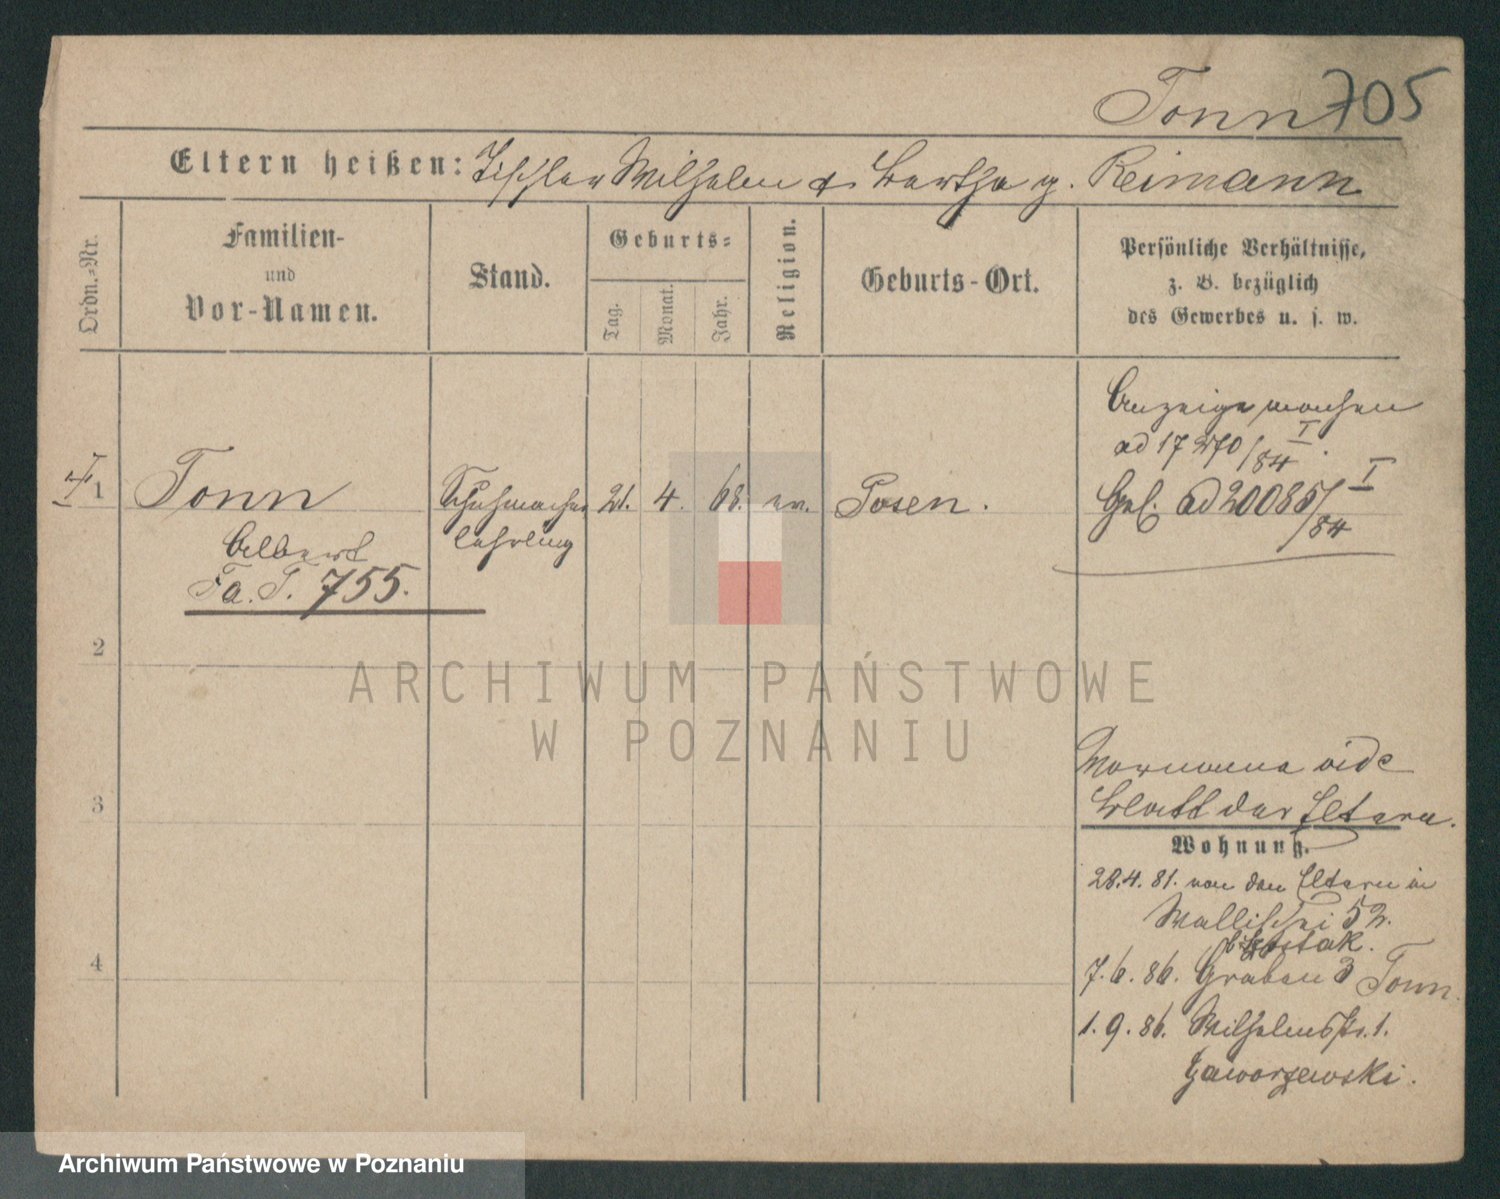 Tonn 705
Eltern heißen: Tischler Wilhelm & Bertha g. Reimann
Ordn.-Nr.
Familien-
und
Vor-Namen.
Stand.
Geburts-
Tag.
Monat.
Jahr.
Religion.
Geburts-Ort.
Persönliche Verhältnisse,
z. B. bezüglich
des Gewerbes u. s. w.
1
Tonn
Albert
Fa. T. 755.
Schuhmacher
lehrling
21. 4. 68. ev. Posen.
Anzeige machen
ad 17270/84 I.
Gef. ad 20085/84 I
2
3
4
vide
Blatt der Eltern.
Wohnung.
28.4.81. von den Eltern in
Wallischei 52.
7.6.86. Graben 3 Tonn.
1.9.86. Wilhelmsstr. 1.
Jaworzewski.
ARCHIWUM PAŃSTWOWE
W POZNANIU
Archiwum Państwowe w Poznaniu